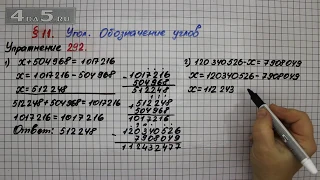 4GDZ.RU
§ 11. Угол. Обозначение углов
Упражнение 292.
1)
x+504968=1017216
x=1017216-504968
x=512248
512248+504968=1017216
1017216=1017216
Ответ: 512248
-1017216
504968
512248
+512248
504968
1017216
-120340526
7908049
112432477
2) 120340526-x=7908049
x=120340526-7908049
x=112243